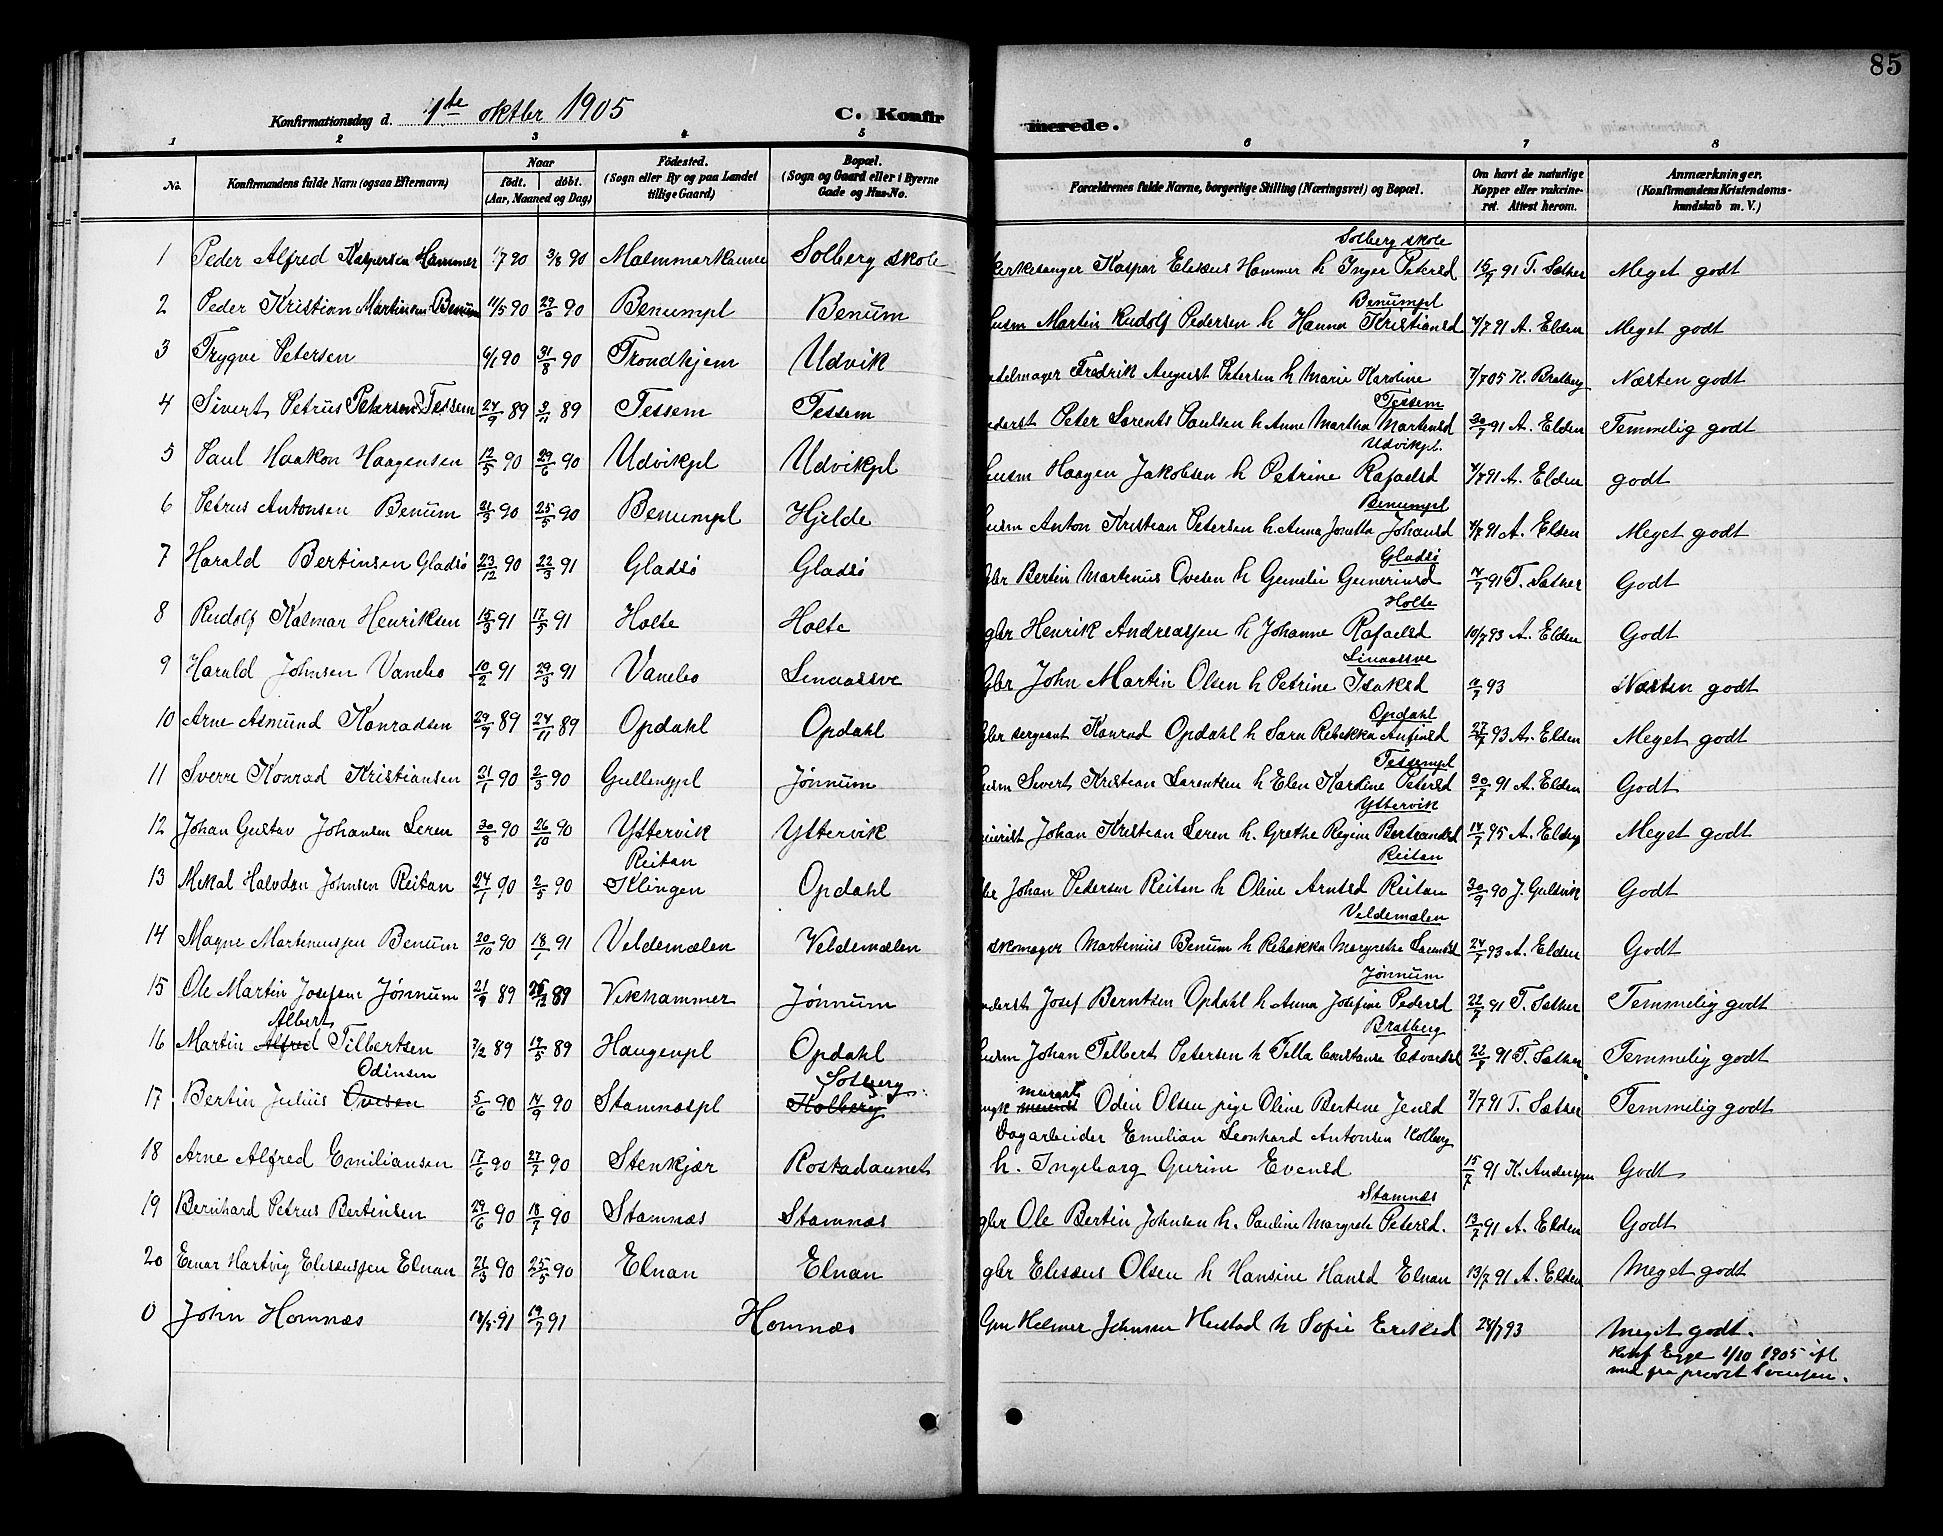 85
Konfirmationsdag d. 1ste oktbr 1905
C. Konfir
merede.
1 2 3 4 5 6 7 8
No.
Konfirmandens fulde Navn (ogsaa Efternavn)
Naar
födt. döbt.
(Aar, Maaned og Dag)
Födested.
(Sogn eller By og paa Landet
tillige Gaard)
Bopæl.
(Sogn og Gaard eller i Byerne
Gade og Hus-No.
Forældrenes fulde Navne, borgerlige Stilling (Næringsvei) og Bopæl.
Om havt de naturlige
Kopper eller vakcine-
ret. Attest herom.
Anmærkninger.
(Konfirmandens Kristendoms-
kundskab m. V.)
Solberg skole
1 Peder Alfred Kaspersen Hammer 1/7 90 3/8 90 Malmmarkaune Solberg skole kirkesanger Kaspar Elisæus Hammer h Inger Petersd 15/7 91 T. Sæther Meget godt
Benumpl
2 Peder Kristian Martinsen Benum 11/5 90 29/6 90 Benumpl Benum husm Martin Rudolf Pedersen h Hanna Kristiansd 4/7 91 A. Elden Meget godt
3 Trygve Petersen 6/1 90 31/8 90 Trondhjem Udvik Fredrik August Petersen h Marie Karoline 7/7 05 K. Bratberg Næsten godt
Tessem
4 Sivert Petrus Petersen Tessem 24/9 89 3/11 89 Tessem Tessem inderst Peter Lorents Paulsen h Anne Martha Martensd 30/7 91 A. Elden Temmelig godt
Udvikpl.
5 Paul Haakon Haagensen 12/5 90 29/6 90 Udvikpl Udvikpl husm Haagen Jakobsen h Petrine Rafaelsd 4/7 91 A. Elden godt
Benumpl
6 Petrus Antonsen Benum 21/3 90 25/5 90 Benumpl Hjelde husm Anton Kristian Petersen h Anna Jonetta Johansd 4/7 91 A. Elden Meget godt
Gladsö
7 Harald Bertinsen Gladsö 23/12 90 22/3 91 Gladsö Gladsö Gbr Bertin Martinus Ovesen h Gemelie Guneriusd 4/7 91 T. Sæther Godt
Holte
8 Rudolf Kalmar Henriksen 15/3 91 17/5 91 Holte Holte gbr Henrik Andreassen h Johanne Rafaelsd 10/7 93 A. Elden Godt
Linaasve
9 Harald Johnsen Vanebo 10/2 91 29/3 91 Vanebo Linaasve Gbr John Martin Olsen h Petrine Isaksd 93 Næsten godt
Opdahl
10 Arne Asmund Konradsen 29/9 89 24/11 89 Opdahl Opdahl Gbr sergeant Konrad Opdahl h Sara Rebekka Anfinsd 27/7 93 A. Elden Meget godt
Tessempl
11 Sverre Konrad Kristiansen 21/1 90 2/3 90 Gullengpl Jönnum husm Sivert Kristian Lorentsen h Elen Kardine Petersd 30/7 91 A. Elden Godt
Yttervik
12 Johan Gustav Johansen Leren 30/8 90 26/10 90 Yttervik Yttervik Johan Kristian Leren h. Grethe Regine Bertrandsd 14/7 95 A. Elden Meget godt
Reitan Reitan
13 Mikal Halvdan Johnsen Reitan 24/1 90 2/5 90 Klingen Opdahl gbr Johan Pedersen Reitan h Oline Arntsd Reitan 30/9 90 J. Gulsvik Godt
Veldemælen
14 Magne Martinussen Benum 20/10 90 18/1 91 Veldemælen Veldemælen skomager Martinus Benum h Rebekka Margrethe 24/7 93 A. Elden Godt
Jönnum
15 Ole Martin Josefsen Jönnum 21/9 89 26/12 89 Vikhammer Jönnum inderst Josef Berntsen Opdahl h Anna Josefine Pedersd 22/7 91 T. Sæther Temmelig godt
Albert Bratberg
16 Martin Alfred Tilbertsen 7/2 89 19/5 89 Haugenpl Opdahl husm Johan Telbert Petersen h Tella Constanse Edvardsd 22/7 91 T. Sæther Temmelig godt
Odinsen Solberg murant
17 Bertin Julius Ovesen 5/6 90 14/9 90 Stamnæspl Kolberg ungk Odin Olsen pige Oline Bertine Jensd 7/7 91 T. Sæther Temmelig godt
Dagarbeider Emilian Leonhard Antonsen Kolberg
18 Arne Alfred Emiliansen 17/6 90 27/7 90 Stenkjær Rostadaunet h. Ingeborg Gurine Evensd 15/7 91 K. Anderssen Godt
Stamnæs
19 Bernhard Petrus Bertinsen 29/6 90 18/7 90 Stamnæs Stamnæs gbr Ole Bertin Johnsen h. Pauline Margrete Petersd. 13/7 91 A. Elden Godt
20 Einar Hartvig Elisæussen Elnan 21/3 90 25/5 90 Elnan Elnan gbr Elisæus Olsen h Hansine Hansd Elnan 13/7 91 A. Elden Meget godt
0 John Homnæs 91 19/7 91 Homnæs Gm Helmer Johnsen Hustad h Sofie Eriksd 24/7 93 Meget godt.
Konf Egge 1/10 1905 ift
med fra provst Svensen.